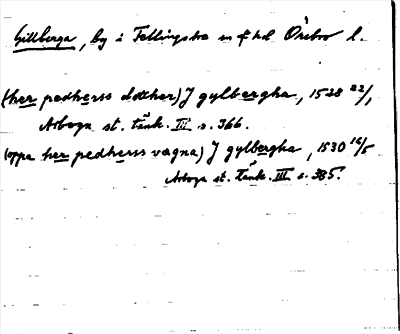 Gillberga, by i Fellingsbro sn f hd Örebro l.
(her pedherss dotther) J gylbergha, 1528 22/1,
Arboga st. tänk. III s. 366.
(oppa her pedherss vægna) J gylbergha, 1530 16/5
Arboga st. tänk. III s. 385.